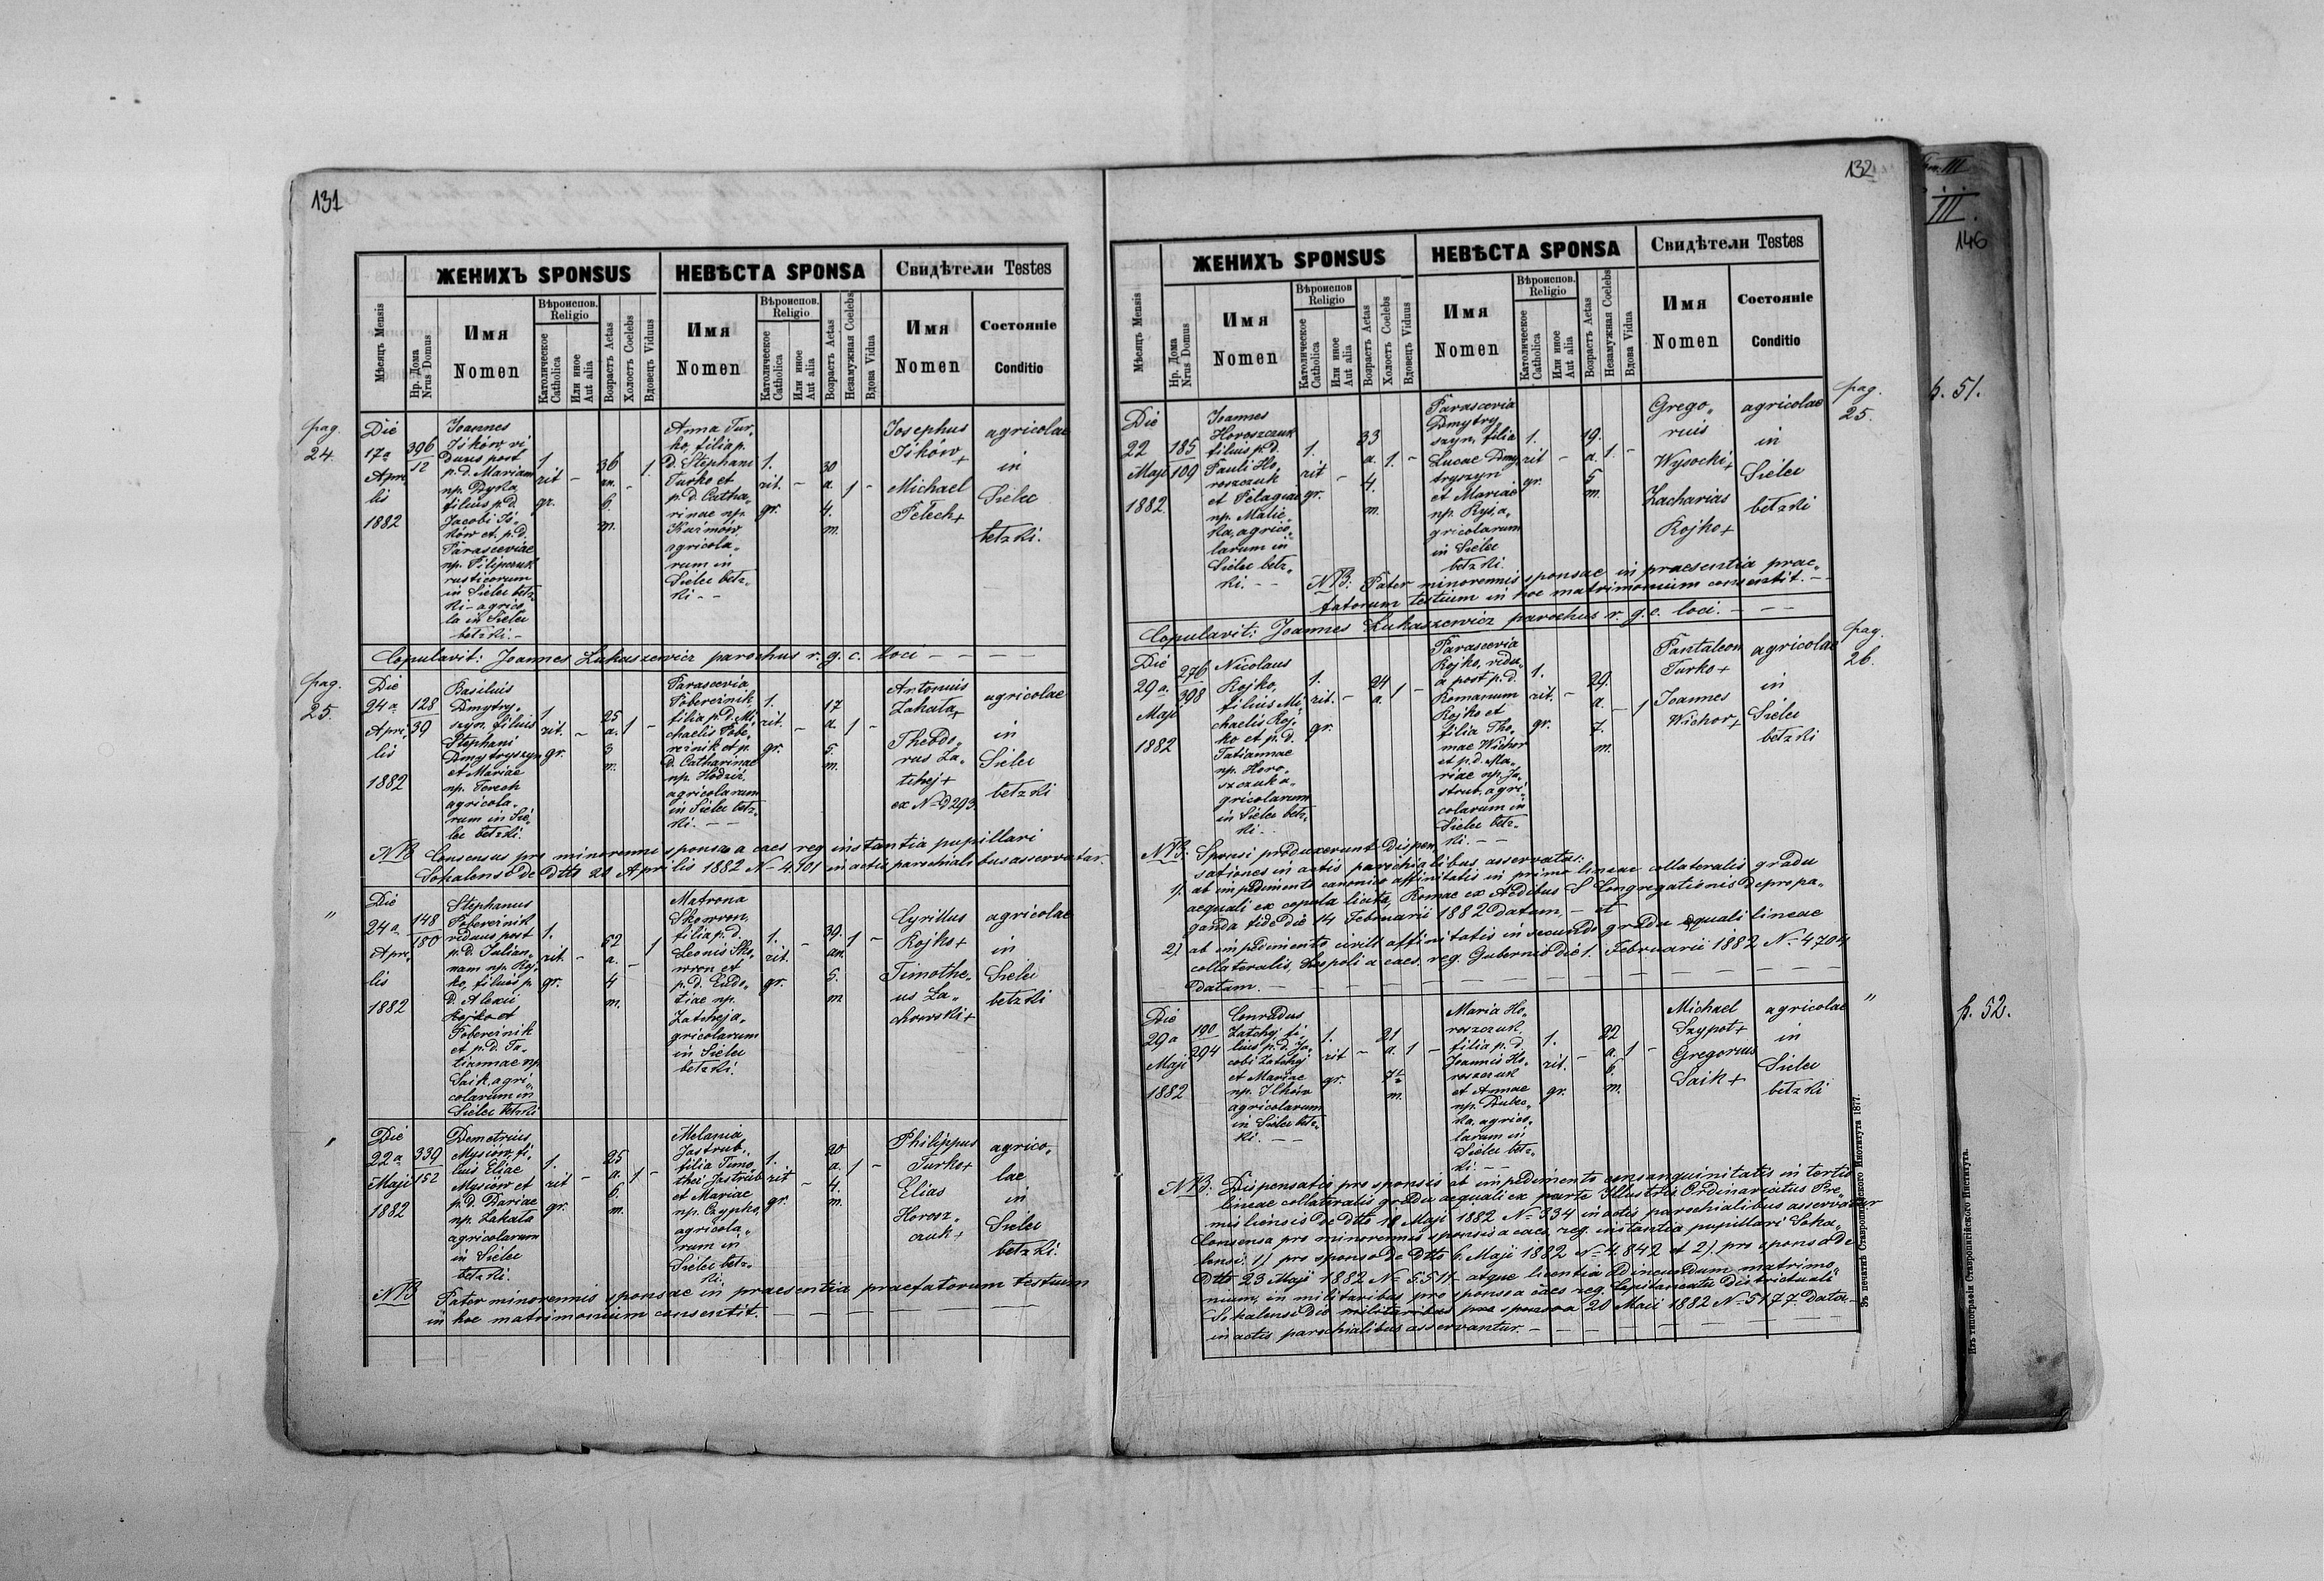 131
ЖЕНИХЪ SPONSUS
НЕВѢСТА SPONSA
Свидѣтели Testes
Мѣсяцъ Mensis
Нр. Дома
Nrus Domus
Имя
Nomen
Вѣроиспов.
Religio
Католическое
Catholica
Или иное
Aut alia
Возрастъ Aetas
Холостъ Coelebs
Вдовецъ Viduus
Имя
Nomen
Вѣроиспов.
Religio
Католическое
Catholica
Или иное
Aut alia
Возрастъ Aetas
Незамужная Coelebs
Вдова Vidua
Имя
Nomen
Состояніе
Conditio
pag.
24.
Die
17a
Apri-
lis
1882
396
12
Joannes
Iśków, vi
duus post
p. d. Mariam
np. Dyka
filius p. d.
Jacobi Iś-
ków et p. d.
Parasceviae
np. Pilipczuk
rusticorum
in Sielec bełz
ki - agrico
la in Sielec
bełzki. -
1.
rit
gr.
-
36
an.
6.
m.
-
1.
Anna Tur-
ko, filia p.
d. Stephani
Turko et
p. d. Catha-
rinae np.
Kuźmów
agricola-
rum in
Sielec bełz-
ki - -
1.
rit.
gr.
-
30
a.
4.
m.
1
-
Josephus
Iśków +
Michael
Pelech +
agricolae
in
Sielec
bełzki.
Copulavit: Joannes Łukaszewicz parochus r. g. c. loci - - - -
pag.
25.
Die
24a
Apri-
lis
1882
128
39
Basilius
Dmytry-
szyn, filius
Stephani
Dmytryszyn
et Mariae
np. Terech
agricola-
rum in Sie-
lec bełzki.
1.
rit.
gr.
-
25
a.
3
m.
1
-
Parascevia
Pobereźnik
filia p. d. Mi-
chaelis Pobe-
reźnik et p.
d. Catharinae
np. Hodzić
agricolarum
in Sielec bełz-
ki. - -
1.
rit.
gr.
-
17
a.
5.
m.
1
-
Antonius
Zakała +
Theodo-
rus Ła-
tchej +
ex N-d 293
agricolae
in
Sielec
bełzki
NB Consensus pro minorenni sponsa a caes reg instantia pupillari
Sokalensi de dtto 20 Aprilis 1882 N- 4.101 in actis parochialibus asservatur.
"
Die
24a
Apri-
lis
1882
148
180
Stephanus
Pobereźnik
viduus post
p. d. Julian-
nam np. Koj-
ko, filius p.
d. Alexii
Kojko et
Pobereźnik
et p. d. Ta-
tiannae np.
Saik, agri-
colarum in
Sielec bełzki
1.
rit.
gr.
-
52
a.
4
m.
-
1
Matrona
Skowron,
filia p. d.
Leonis Sko-
wron et
p. d. Eudo-
tiae np.
Zatchej a-
gricolarum
in Sielec
bełzki.
1.
rit.
gr.
-
39.
an.
5.
m
1
-
Cyrillus
Kojko +
Timothe-
us Za-
chowski +
agricolae
in
Sielec
bełzki
"
Die
22a
Maji
1882
339
152
Demetrius
Mysiów, fi-
lius Eliae
Mysiów et
p. d. Dariae
np. Zakała
agricolarum
in Sielec
bełzki.
1.
rit
gr.
-
25
a.
6.
m.
1
-
Melania
Jastrub,
filia Timo-
thei Jastrub
et Mariae
np. Czypko,
agricola-
rum in
Sielec bełz-
ki.
1.
rit
gr.
-
20
a.
4.
m.
1
-
Philippus
Turko +
Elias
Horosz-
czuk +
agrico-
lae
in
Sielec
bełzki.
NB Pater minorennis sponsae in praesentia praefatorum testium
in hoc matrimonium consentit. - - - -
132
ЖЕНИХЪ SPONSUS
НЕВѢСТА SPONSA
Свидѣтели Testes
Мѣсяцъ Mensis
Нр. Дома
Nrus Domus
Имя
Nomen
Вѣроиспов
Religio
Католическое
Catholica
Или иное
Aut alia
Возрастъ Aetas
Холостъ Coelebs
Вдовецъ Viduus
Имя
Nomen
Вѣроиспов.
Religio
Католическое
Catholica
Или иное
Aut alia
Возрастъ Aetas
Незамужная Coelebs
Вдова Vidua
Имя
Nomen
Состояніе
Conditio
pag.
25.
Die
22
Maji
1882.
185
109
Joannes
Horoszczuk
filius p. d.
Pauli Ho-
roszczuk
et Pelagiae
np. Malic-
ka, agrico-
larum in
Sielec bełz-
ki. - -
1.
rit
gr.
-
33
a.
4.
m.
1.
-
Parascevia
Dmytry
szyn, filia
Lucae Dmy
tryszyn
et Mariae
np. Rys, a-
gricolarum
in Sielec
bełzki.
1.
rit
gr.
-
19.
a.
5
m.
1.
-
Grego-
rius
Wysocki +
Zacharias
Kojko +
agricolae
in
Sielec
bełzki
NB: Pater minorennis sponsae in praesentia prae-
fatorum testium in hoc matrimonium consentit. - -
Copulavit: Joannes Łukaszewicz parochus r. g. c. loci. - - -
pag.
26.
Die
29a.
Maji
1882
276
398
Nicolaus
Kojko,
filius Mi-
chaelis Koj-
ko et p. d.
Tatiannae
np. Horo-
szczuk a-
gricolarum
in Sielec bełz-
ki -
1.
rit.
gr.
-
24
a.
1
-
Parascevia
Kojko, vidu-
a post p. d.
Romanum
Kojko et
filia Tho-
mae Wichor
et p. d. Ma-
riae np. Ja-
strub, agri-
colarum in
Sielec bełz-
ki. - -
1.
rit.
gr.
-
29.
a.
7.
m.
-
1
Pantaleon
Turko +
Joannes
Wichor +
agricolae
in
Sielec
bełzki
NB: Sponsi produxerunt dispen-
sationes in actis parochialibus asservatas:
1) ab impedimento canonico affinitatis in primo lineae collateralis gradu
aequali ex copula licita, Romae ex Aedibus S Congregationis de propa-
ganda fide die 14 Februarii 1882 datam, - et
2) ab impedimento civili affinitatis in secundo gradu equali lineae
collateralis, Leopoli a caes. reg. Gubernio die 1. Februarii 1882 N- 4704
datam. - - - - - - - -
"
Die
29a
Maji
1882
190
294
Conradus
Zatchej fi-
lius p. d. Ja-
cobi Zatchej
et Mariae
np. Ilków
agricolarum
in Sielec bełz-
ki. - -
1.
rit
gr.
-
21
a.
m.
1
-
Maria Ho-
roszczuk,
filia p. d.
Joannis Ho-
roszczuk
et Annae
np. Dubec-
ka, agrico-
larum in
Sielec bełz-
ki. - -
1.
rit.
gr.
-
22
a.
6.
m.
1
-
Michael
Szypot +
Gregorius
Saik +
agricolae
in
Sielec
bełzki
NB: Dispensatio pro sponsis ab impedimento consanguinitatis in tertio
lineae collateralis gradu aequali ex parte Illustris Ordinariatus Pre-
misliensis de dtto 18 Maji 1882 N- 334 in actis parochialibus asservatur
Consensa pro minorennis sponsis a caes. reg. instantia pupillari Soka-
lensi: 1) pro sponso de dtto 6. Maji 1882 N- 4.842 et 2) pro sponsa de
dtto 23 Maji 1882 N- 5.511 - atque licentia ad ineundum matrimo-
nium, in militaribus pro sponso a caes reg. Capitaneatu districtuali
Sokalensi die militaribus pro sponso a 20 Maii 1882 N- 5177 data -
in actis parochialibus asservantur. - - - - - - -
Въ печатнѣ Ставропигійского Института 1877.
III
III.
146
p. 51.
p. 52.
Изъ типографіи Ставропигійского Института.